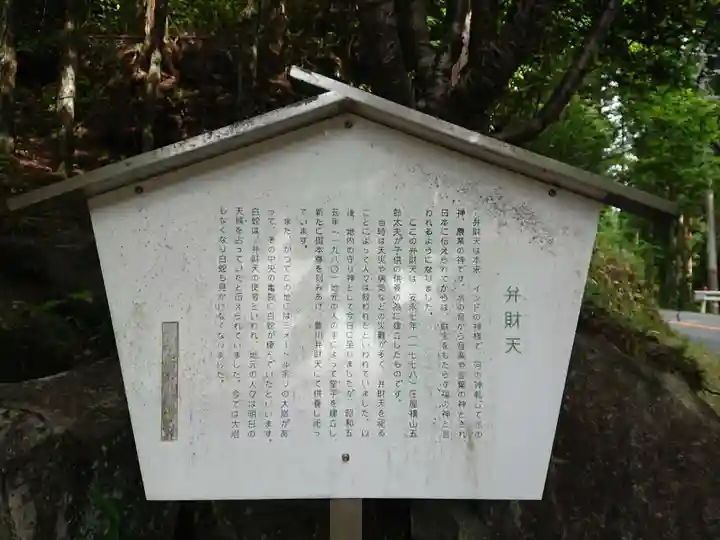 弁財天
弁財天は本来、インドの神様で、河の神転じて水の
神、農業の神です。水の音から音楽や言葉の神とされ
日本に伝えられてからは、財宝をもたらす福の神と言
われるようになりました。
ここの弁財天は、安永七年(一七七八)庄屋横山五
鈴太夫が子供の供養の為に建立したものです。
当時は天災や病気などの災難が多く、弁財天を祀る
ことによって人々は救われたといわれていました。以
後、地内の守り神として今日に至りましたが、昭和五
五年(一九八〇)地元の人の手によって堂宇を建立し
新たに御本尊を刻みあげ、豊川弁財天として供養し祀っ
ています。
また、かつてこの地には三メートル余りの大岩があ
って、その中央の亀裂に白蛇が棲んでいたといいます。
白蛇は、弁財天の使者といわれ、地元の人々は明日の
天候を占っていたと伝えられていました。今では大沼
もなくなり白蛇も見かけなくなりました。